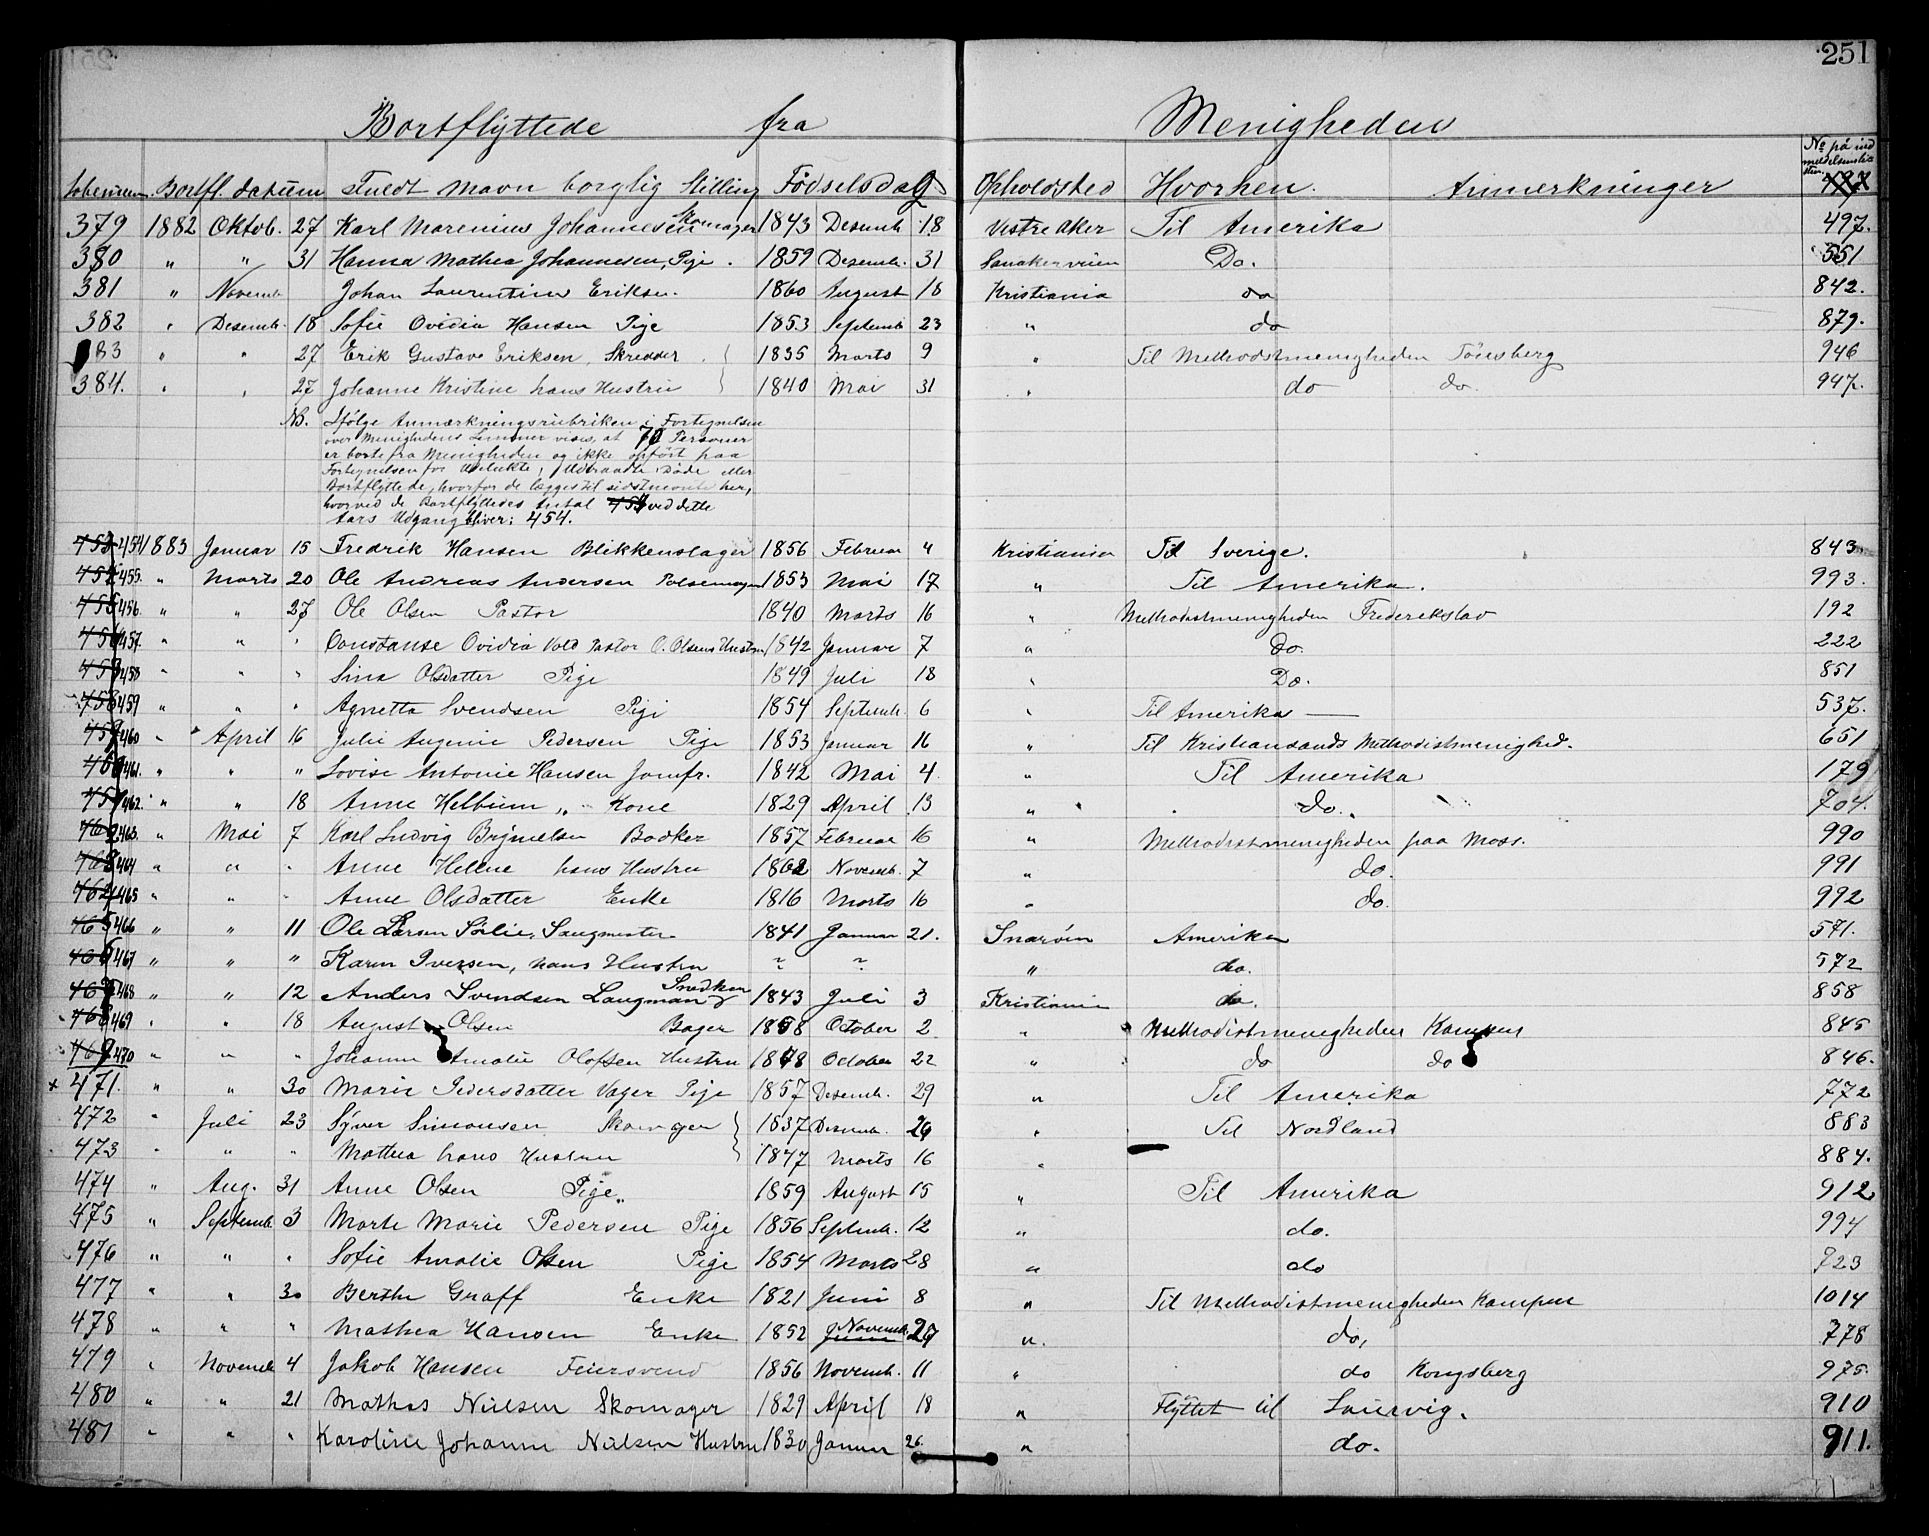 251
Bortflyttede fra Menigheden
Bortfl. datum Fuldt Navn borglig Stilling Födselsdag Opholdsted Hvorhen. Anmerkninger No på ind
379 1882 Oktob. 27 Karl Marenius Johannesen Skomager 1843 Desemb. 18 Vestre Aker Til Amerika 497.
380 " " 31 Hanna Mathea Johannesen, Pige. 1859 Desemb. 31 Do. 551
381 " Novemb Johan Laurentius Eriksen. 1860 August 18 Kristiania do 842.
382 " Desemb. 18 Sofie Ovidia Hansen Pige 1853 Septemb 23 " do 879.
383 " " 27 Erik Gustave Eriksen, Skredder. 1835 Marts 9 " Til Methodistmenigheden Tönsberg 946
384. " " 27 Johanne Kristine hans Hustru 1840 Mai 31 " do do. 947.
NB. Ifölge Anmærkningsrubriken i Fortegnelsen
over Menighedens Lemmer vises, at 70 Personer
er borte fra Menigheden og ikke opfört paa
Fortegnelsen for Udelukte, Udtraadte Döde eller
Bortflyttede, hvorfor de lægges til sidstnævnte her,
hvorved de Bortflyttedes Antal 453 ved dette
Aars Udgang bliver: 454.
453 454 1883 Januar 15 Fredrik Hansen Blikkenslager 1856 Februar 4 Kristiania Til Sverige. 843.
455. " Marts 20 Ole Andreas Andersen Pølsemager 1853 Mai 17 " Til Amerika. 993.
456. " " 27 Ole Olsen Pastor 1840 Marts 16 " Methodistmenigheden Frederikstad 192
457. " " " Constanse Ovidia Vold Pastor O. Olsens Hustru 1842 Januar 7 " Do. 222
458 " " " Sina Olsdatter Pige 1849 Juli 18 " Do. 851
459 " " " Agnetta Svendsen Pige 1854 Septemb. 6 " Til Amerika — 537.
460 " April 16 Julie Augenie Pedersen Pige 1853 Januar 16 " Til Kristiansands Methodistmenighed. 651
461. " " " Lovise Antonie Hansen Jomfr. 1842 Mai 4. " Til Amerika 179
462. " " 18 Anne Helbium " Kone 1829 April 13 " do. 704.
463. " Mai 7 Karl Ludvig Brynelsen Bødker 1857 Februar 16 " Methodistmenigheden paa Moss. 990
464 " " " Anne Hellne hans Hustru 1862 Novemb. 7 " do. 991
465 " " " Anne Olsdatter Enke 1816 Marts 16 " do. 992
466 " " 11 Ole Larsen Sölie, Sangmester 1841 Januar 21. Snaröen Amerika 571.
467 " " " Karen Iversen, hans Hustru ? ? " do. 572
468 " " 12 Anders Svendsen Langman Snedker 1843 Juli 3 Kristiania do. 858
469 " " 18 August Olsen Bager 1858 October 2 " Methodistmenigheden Kampen 845
470 " " " Johanne Amalie Olofsen Hustru 1848 October 22 " do do 846.
x 471. " " 30 Marie Pedersdatter Vager Pige 1857 Desemb. 29 " Til Amerika 772
472 " Juli 23 Syver Simonsen Skomager 1837 Desemb. 29 " Til Nordland 883
473 " " " Mathea hans Hustru 1847 Marts 16 " 884.
474 " Aug. 31 Anne Olsen Pige " 1859 August 15 " Til Amerika 912
475 " Septemb 3 Marte Marie Pedersen Pige 1856 Septemb. 12 " do. 994
476 " " " Sofie Amalie Olsen Pige 1854 Marts 28 " do 723
477 " " 30 Berthe Graff Enke 1821 Juni 8 " Til Methodistmenigheden Kampen 1014
478 " " " Mathea Hansen Enke 1852 Juni Novemb. 27 " do, 778
479 " Novemb 4 Jakob Hansen Feiersvend 1856 Novemb. 11 " do Kongsberg 975.
480 " " 21 Mathas Nielsen Skomager 1829 April 18 " Flyttet til Laurvig. 910
481 " " " Karoline Johanne Nielsen Hustru 1830 Januar 26 " do. 911.